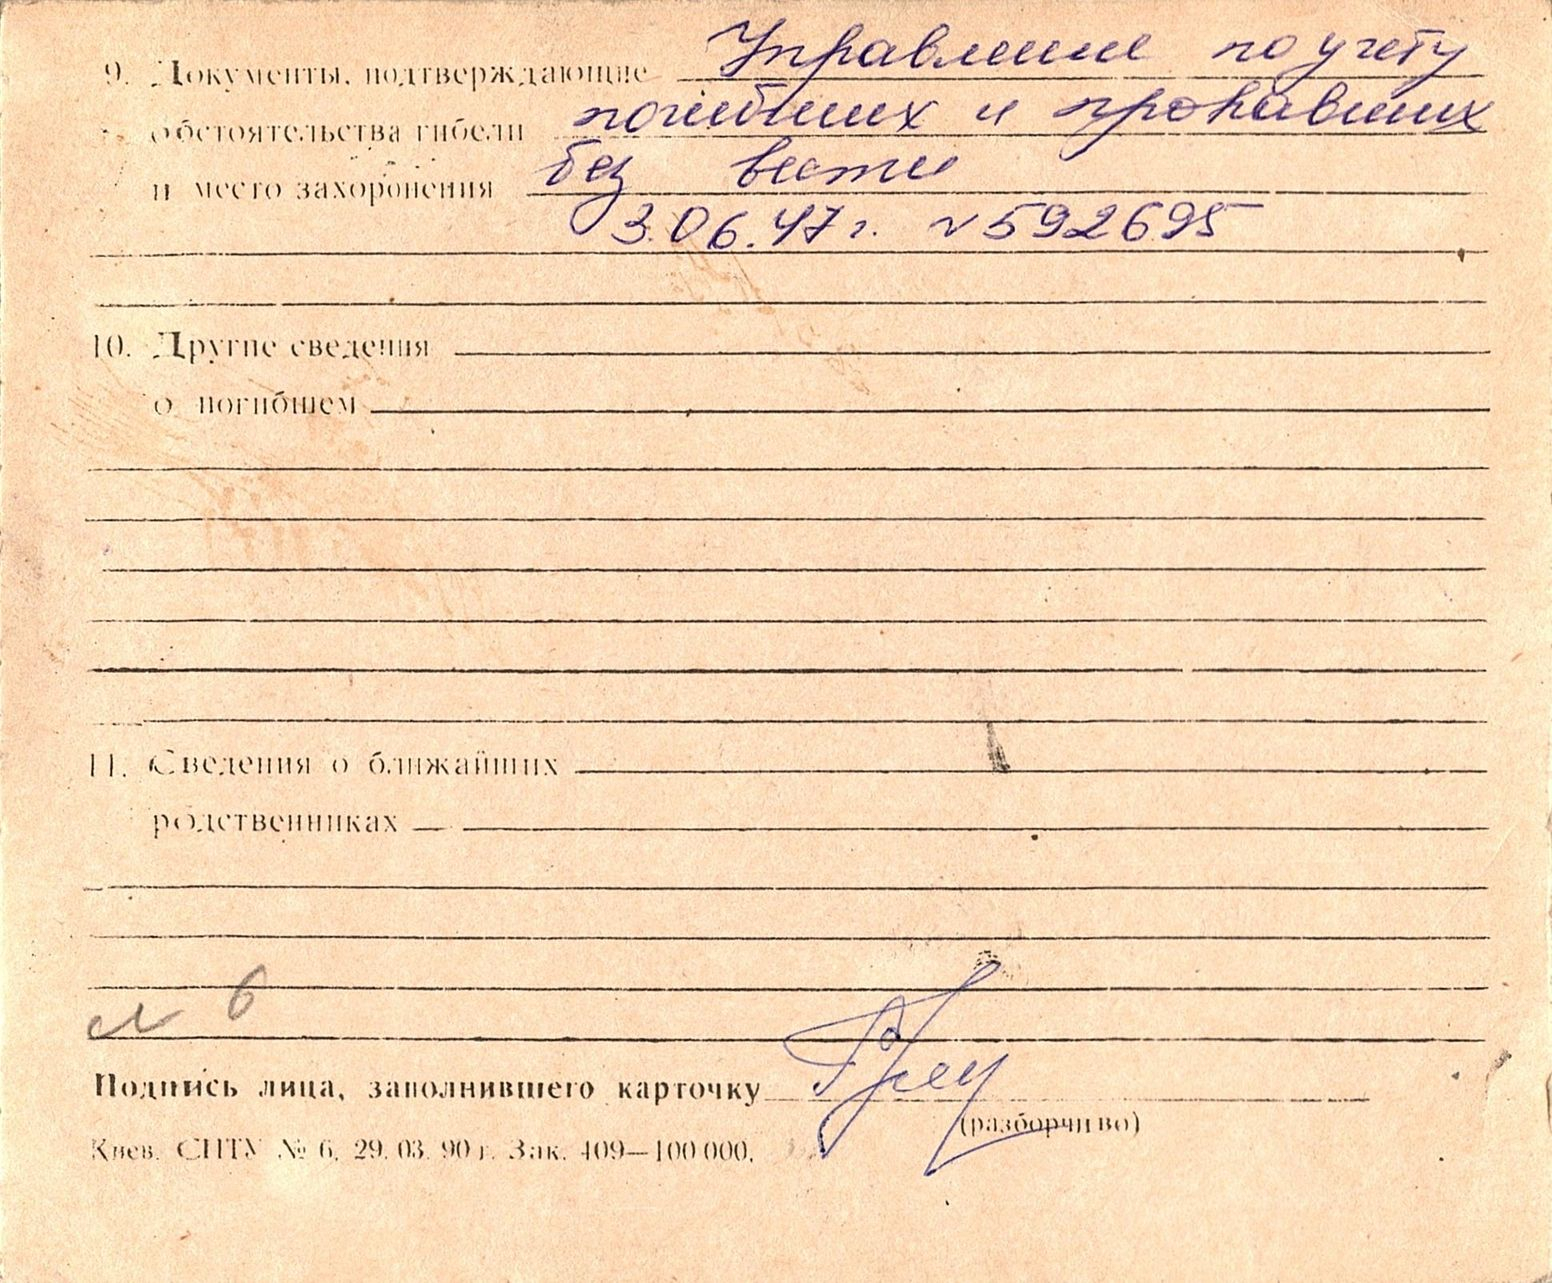 9. Документы, подтверждающие Управление по учету
обстоятельства гибели погибших и пропавших
и место захоронения без вести
3.06.47 г. № 592695
10. Другие сведения
о погибшем
11. Сведения о ближайших
родственниках
№ 6
Подпись лица, заполнившего карточку
(разборчиво)
Киев. СПТУ № 6. 29. 03. 90 г. Зак. 409—100 000.